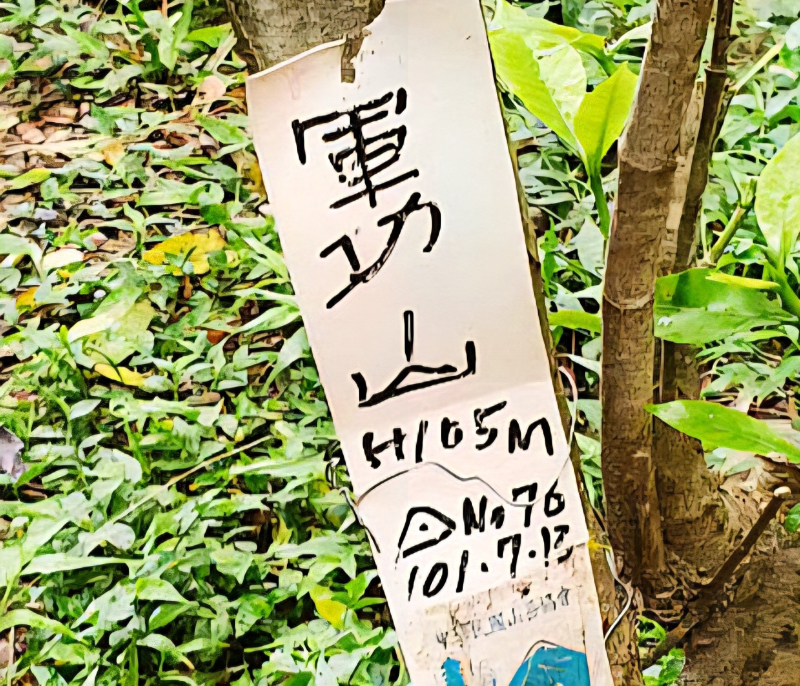 軍功山
H105M
△No76
101.7.13